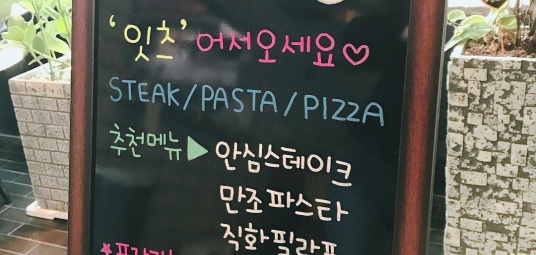 '잇츠' 어서오세요♡
STEAK/PASTA/PIZZA
추천메뉴▶안심스테이크
만조파스타
직화필라프